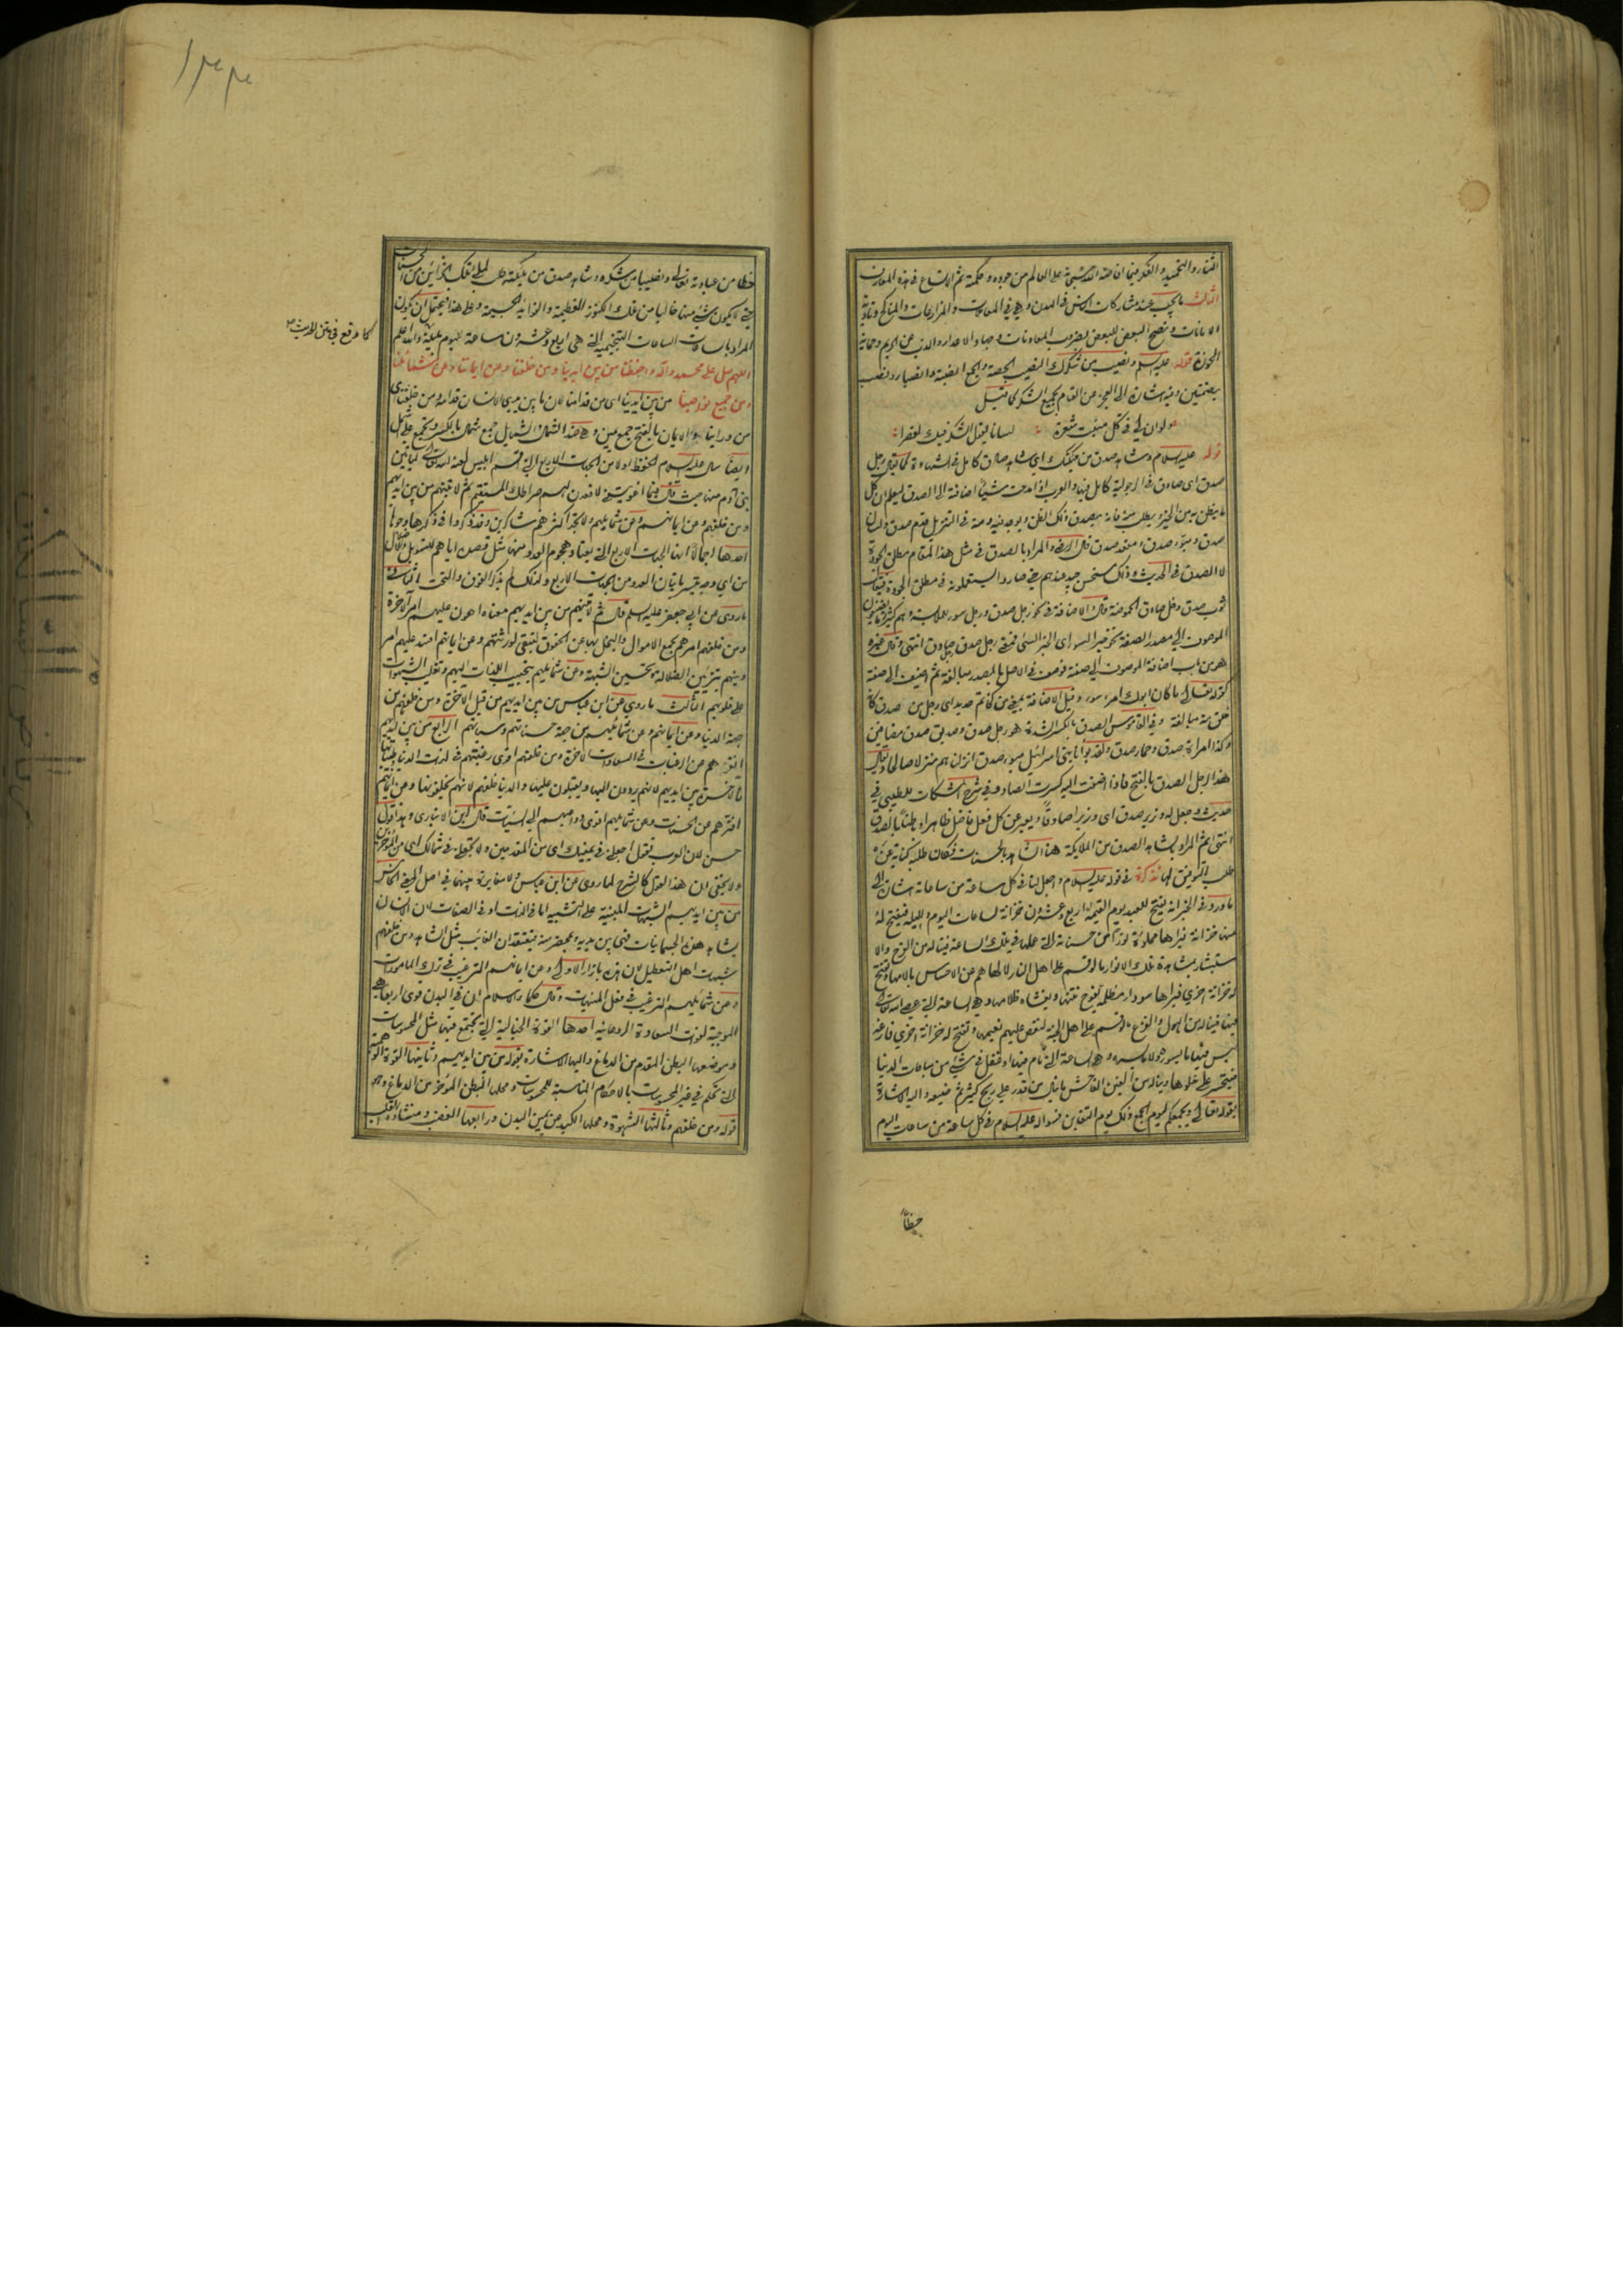 الثالث ما يجب عند مشاركات الناس في المدن وهي في المعاملات والمزارعات والمناكح وتأدية
الامانات ونصح البعض للبعض بضروب المعاونات وجهاد الاعداء والذب عن الحريم وحماية
الحوزة قوله عليه السلام ونصيبا من شكرك النصيب الحصة والجمع انصبة وانصباء ونصب
بضمتين وفيه اشارة الى العجز من القيام بجميع الشكر كما قيل
ولو ان لي في كل منبت شعرة لسانا يقول الشكر فيك لقصرا
قوله عليه السلام وشاهد صدق من ملئكتك اي شاهد صادق كامل في الشهادة كما يقال رجل
صدق اى صادق في الرجولية كامل فيها والعرب اذا مدحت شيئا اضافته الى الصدق ليعلم ان كل
ما يظن به من الخير ويطلب منه فانه يصدق ذلك الظن ويوجد فيه ومنه في التنزيل قدم صدق ولسان
صدق ومبوّء صدق ومقعد صدق قال الرضي والمراد بالصدق في مثل هذا المقام مطلق الجودة
لا الصدق في الحديث وذلك مستحسن جيد عندهم حتى صاروا يستعملونه في مطلق الجودة فيقال
ثوب صدق وخل صادق الحموضة
هو من باب اضافة الموصوف الى صفته
كقوله تعالى ما كان ابوك امرء سوء وقيل الاضافة بمعنى من كخاتم حديد اى رجل من صدق كأنه
خلق منه مبالغة وفي القاموس الصدق بالكسر الشدة هو رجل صدق وصديق صدق مضافين
وكذا امراة صدق وحمار صدق ولقد بوّأنا بني اسرائيل مبوء صدق انزلناهم منزلا صالحا ويقال
هذا الرجل الصدق بالفتح فاذا اضفت اليه كسرت الصاد وفي شرح المشكات للطيبي في
حديث وجعل له وزير صدق اى وزيرا صادقا ويعبر عن كل فعل فاضل ظاهرا وباطنا بالصدق
انتهى ثم المراد بشاهد الصدق من الملائكة هنا الشاهد بالحسنات فكان طلبه كناية عن
طلب التوفيق لها تذكرة في قوله عليه السلام واجعل لنا في كل ساعة من ساعاته اشارة الى
ما ورد في الخبر انه يفتح للعبد يوم القيمة اربع وعشرون خزانة لساعات اليوم والليلة فيفتح له
منها خزانة فيراها مملوّة نورا من حسناته التي عملها في تلك الساعة فيناله من الفرح والا
ستبشار بمشاهدة تلك الانوار ما لو قسم على اهل النار لالهاهم عن الاحساس بالامها ويفتح
له خزانة اخرى فيراها سوداء مظلمة يفوح نتنها ويغشاه ظلامها وهي الساعة التي عصى الله تعالى
فيها فيناله من الهول والفزع ما لو قسم على اهل الجنة لنغص عليهم نعيمها ويفتح له خزانة اخرى فارغة
ليس فيها ما يسوءه ولا يسره وهي الساعة التي نام فيها او غفل في شيء من مباحات الدنيا
فيتحسر على خلوها ويناله من الغبن الفاحش ما ينال من قدر على ربح كثير ثم ضيعه واليه الاشارة
بقوله تعالى ويجمعكم ليوم الجمع ذلك يوم التغابن فسؤاله عليه السلام في كل ساعة من ساعات اليوم
حظا
حظا من عباداته تعالى ونصيبا من شكره وشاهد صدق من ملئكته طلب لملئ تلك الخزاين من الحسنات
حتى لا يكون شيء منها خاليا من تلك الكنوز العظيمة والفوايد الجسيمة وعلى هذا فيحتمل ان يكون
المراد بالساعات الساعات التنجيمية التي هي اربع وعشرون ساعة لليوم بليلته والله اعلم
اللهم صل على محمد واله واحفظنا من بين ايدينا ومن خلفنا وعن ايماننا وعن شمائلنا
ومن جميع نواحينا من بين ايدينا اى من قدامنا لان ما بين يدي الانسان قدامه ومن خلفنا اى
من وراينا والايمان بالفتح جمع يمين وهو ضد الشمال والشمايل جمع شمال بالكسر ويجمع على شمل
ايضا سال عليه السلام الحفظ اولا من الجهات الاربع التي اقسم ابليس لعنه الله تعالى ليأتين
بني آدم منها حيث قال فبما اغويتني لاقعدن لهم صراطك المستقيم ثم لاتينهم من بين ايديهم
ومن خلفهم وعن ايمانهم وعن شمايلهم ولا تجد اكثرهم شاكرين وقد ذكروا في ذكرها وجوها
احدها
من اي وجه تيسر باتيان العدو من الجهات الاربع ولذلك لم يذكر الفوق والتحت الثاني
ما روى عن ابي جعفر عليه السلام قال ثم لاتينهم من بين ايديهم معناه اهون عليهم امر الاخرة
ومن خلفهم امرهم بجمع الاموال والبخل بها عن الحقوق لتبقى لورثتهم وعن ايمانهم افسد عليهم امر
دينهم بتزيين الضلالة وتحسين الشبهة وعن شمايلهم بتحبيب اللذات اليهم وتغليب الشهوات
على قلوبهم الثالث ما روي عن ابن عباس من بين ايديهم من قبل الاخرة ومن خلفهم من
جهة الدنيا وعن ايمانهم وعن شمائلهم من جهة حسناتهم وسيئاتهم الرابع من بين ايديهم
افترهم عن الرغبات في السعادات الاخرة ومن خلفهم اقوى رغبتهم في لذات الدنيا وطيباتها
فالاخرة بين ايديهم لانهم يردون اليها ويقبلون عليها والدنيا خلفهم لانهم يخلفونها وعن ايمانهم
افترهم عن الحسنات وعن شمايلهم اقوى دواعيهم الى السيئات قال ابن الانباري وهذا قول
حسن لان العرب تقول اجعلني في يمينك اى من المقدمين ولا تجعلني في شمالك اى من المؤخرين
ولا يخفى ان هذا القول كالشرح لما روى عن ابن عباس ولا مغايرة بينهما في اصل المعنى الخامس
من بين ايديهم الشبهات المبنية على التشبيه اما في الذات او في الصفات لان الانسان
يشاهد هذه الجسمانيات فهي بين يديه وبمحضر منه فيعتقد ان الغائب مثل الشاهد ومن خلفهم
شبهات اهل التعطيل لان هذه بازاء الاولى وعن ايمانهم الترغيب في ترك المامورات
وعن شمائلهم الترغيب في فعل المنهيات وقال حكماء الاسلام ان في البدن قوى اربعا هي
الموجبة لفوت السعادة الروحانية احدها القوة الخيالية التي تجتمع فيها مثل المحسوسات
وموضعها البطن المقدم من الدماغ واليها الاشارة بقوله من بين ايديهم وثانيها القوة الوهمية
التي تحكم في غير المحسوسات بالاحكام المناسبة للمحسوسات ومحلها البطن المؤخر من الدماغ وهو
قوله ومن خلفهم وثالثها الشهوة ومحلها الكبد من يمين البدن ورابعها الغضب ومنشاؤه القلب